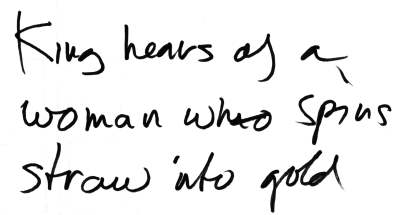 King hears of a
woman who spins
straw into gold